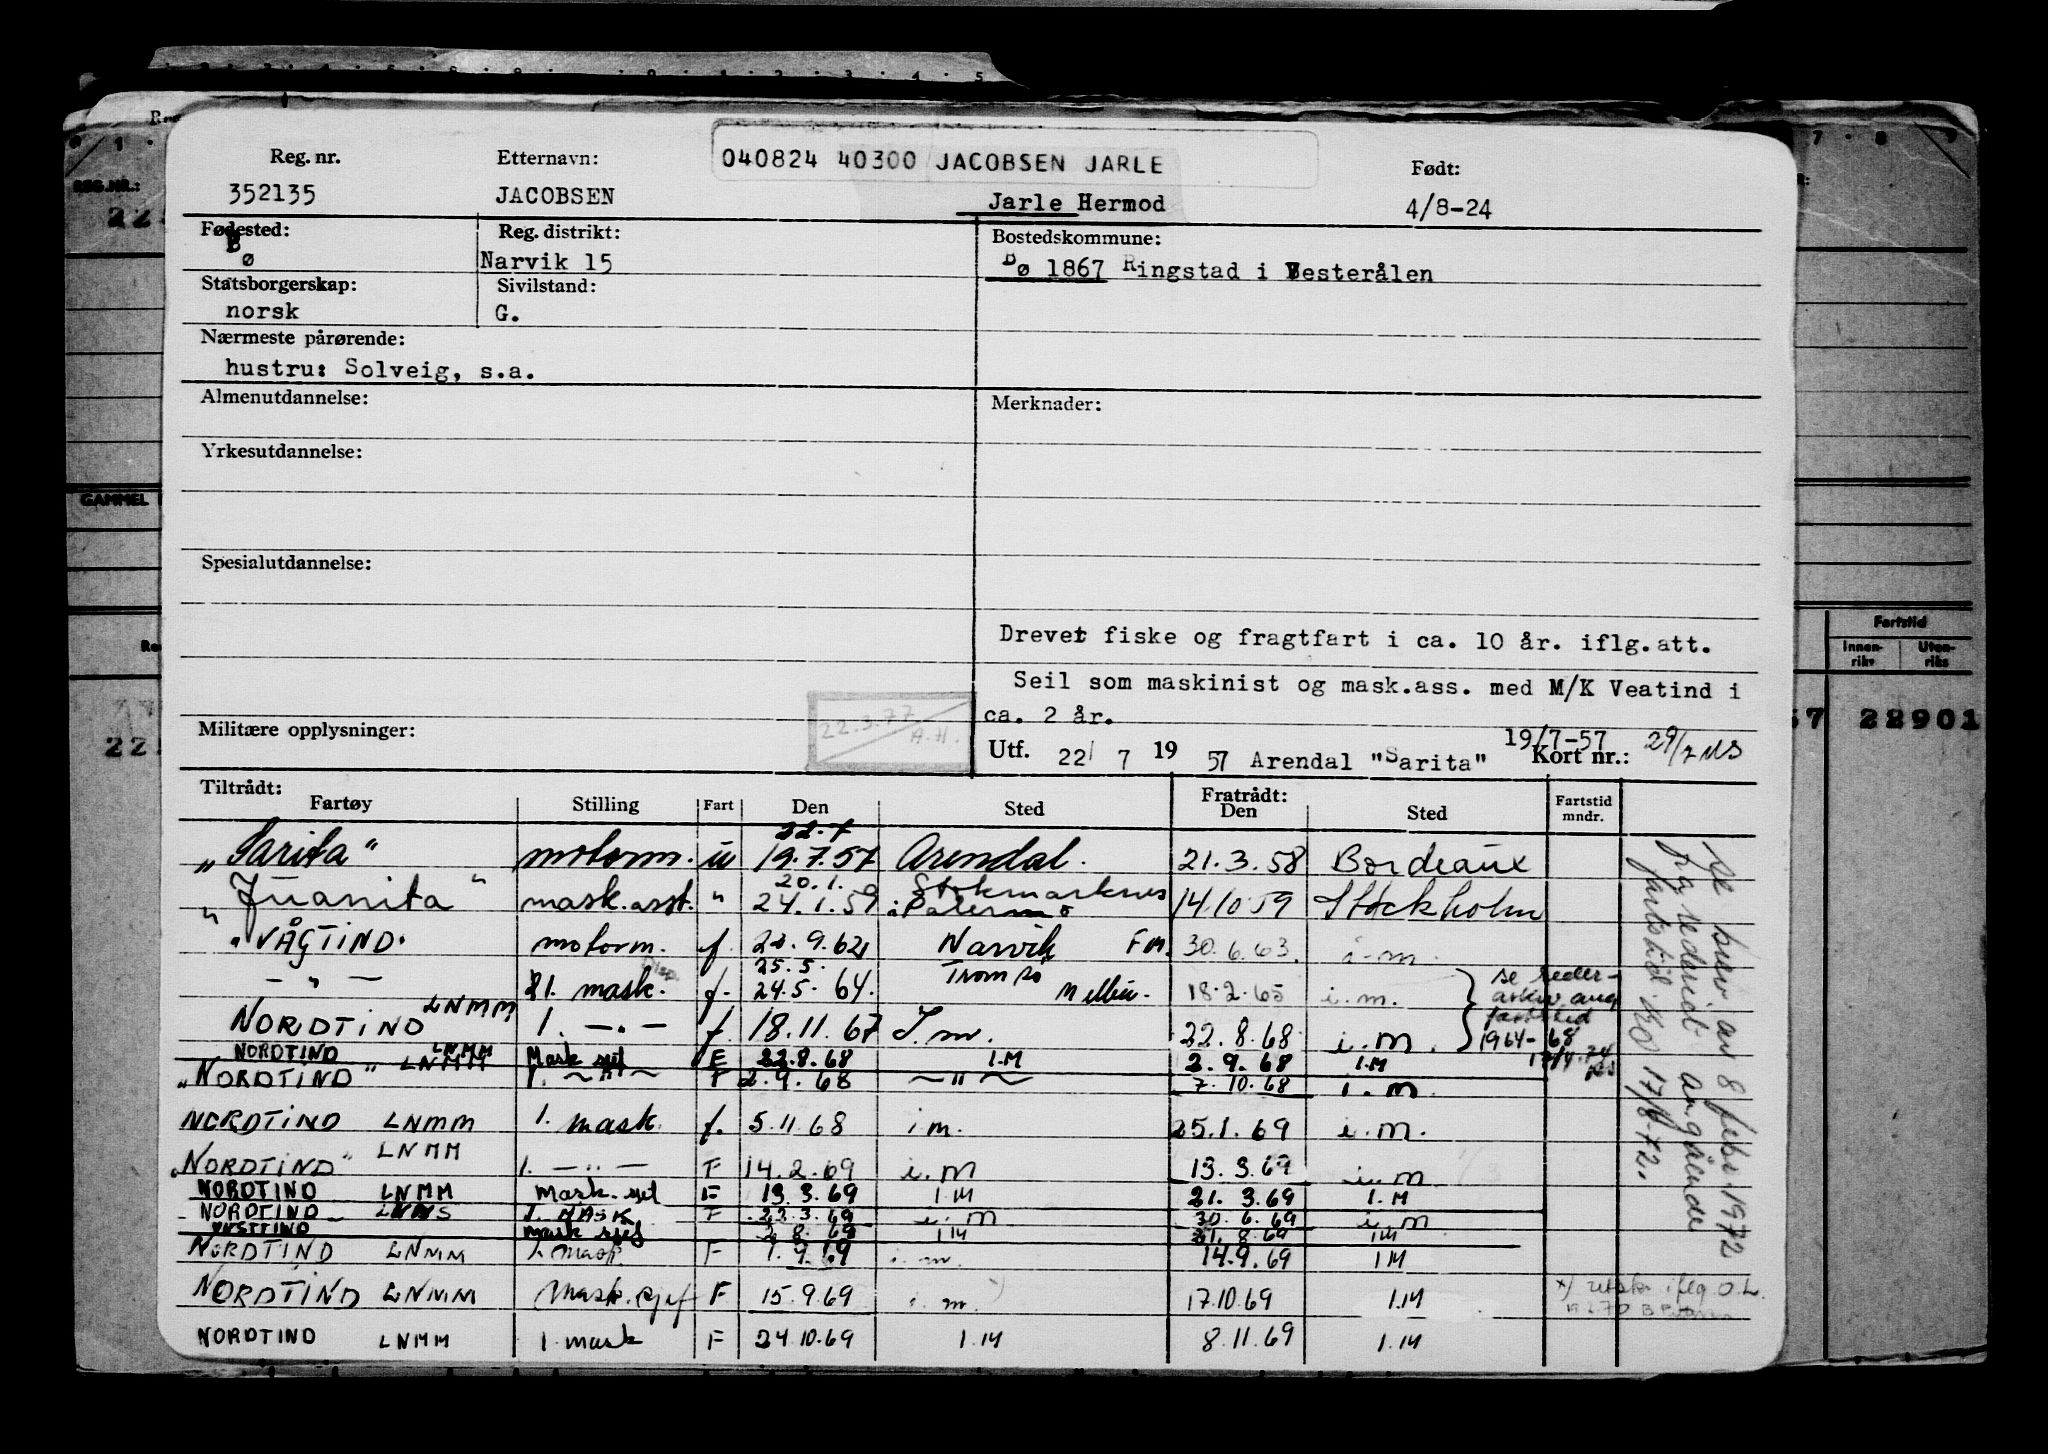 040824 40300 JACOBSEN JARLE
Reg. nr. Etternavn: Født:
352135 JACOBSEN Jarle Hermod 4/8-24
Fødested: Reg. distrikt: Bostedskommune:
Bø Narvik 15 Bø 1867 Ringstad i Vesterålen
Statsborgerskap: Sivilstand:
norsk G.
Nærmeste pårørende:
hustru: Solveig, s.a.
Almenutdannelse: Merknader:
Yrkesutdannelse:
Spesialutdannelse:
Drevet fiske og fragtfart i ca. 10 år. iflg.att.
Seil som maskinist og mask.ass. med M/K Veatind i
ca. 2 år.
22.3.77 A.H.
Militære opplysninger: Utf. 22/ 7 19 57 Arendal "Sarita" 19/7-57 Kort nr.: 29/7 NS
Tiltrådt: Fratrådt:
Fartøy Stilling Fart Den Sted Den Sted Fartstid mndr.
22.7
"Sarita" motorm. u 19.7.57 Arendal. 21.3.58 Bordeaux
20.1. Stokmarknes
"Juanita" mask.asst. " 24.1.59 Palermo 14.10.59 Stockholm
"VÅGTIND" motorm. f. 9.62 Narvik Fm. 30.6.63. i.m.
25.5. Tromsø
- " - 1. mask. f. 24.5.64. Melbu. 18.2.65 i.m. se reder-
arkiv ang
fartstid
LNMM
NORDTIND 1. - " - f. 18.11.67 I.m. 22.8.68 i.m. 1964-68
NORDTIND LNMM Mask sjef F 22.8.68 I.M 2.9.68 I.M
"NORDTIND" LNMM 1. - " - F 2.9.68 - " - 7.10.68 i.m.
NORDTIND LNMM 1. mask. f. 5.11.68 i m. 25.1.69 i.m.
"NORDTIND" LNMM 1. - " - F 14.2.69 i.m 13.3.69 i.m.
NORDTIND LNMM Mask. sjef F 13.3.69 I.M 21.3.69 I.M
NORDTIND 1. MASK F 22.3.69 i.m 30.6.69 i.m
Mask sjef 8.69 I M 31.8.69 I M
NORDTIND LNMM 1. Mask. F 1.9.69 i.m. 14.9.69 I M
NORDTIND LNMM Mask.sjef F 15.9.69 i.m. x) 17.10.69 I.M x) iflg O.L.
NORDTIND LNMM 1. mask F 24.10.69 I.M 8.11.69 I.M
Se brev av 8 febr. 1972
fra rederiet angående
fartstid
REG.NR.:
GAMMEL
Fartstid
Innen-riks Uten-riks
22901